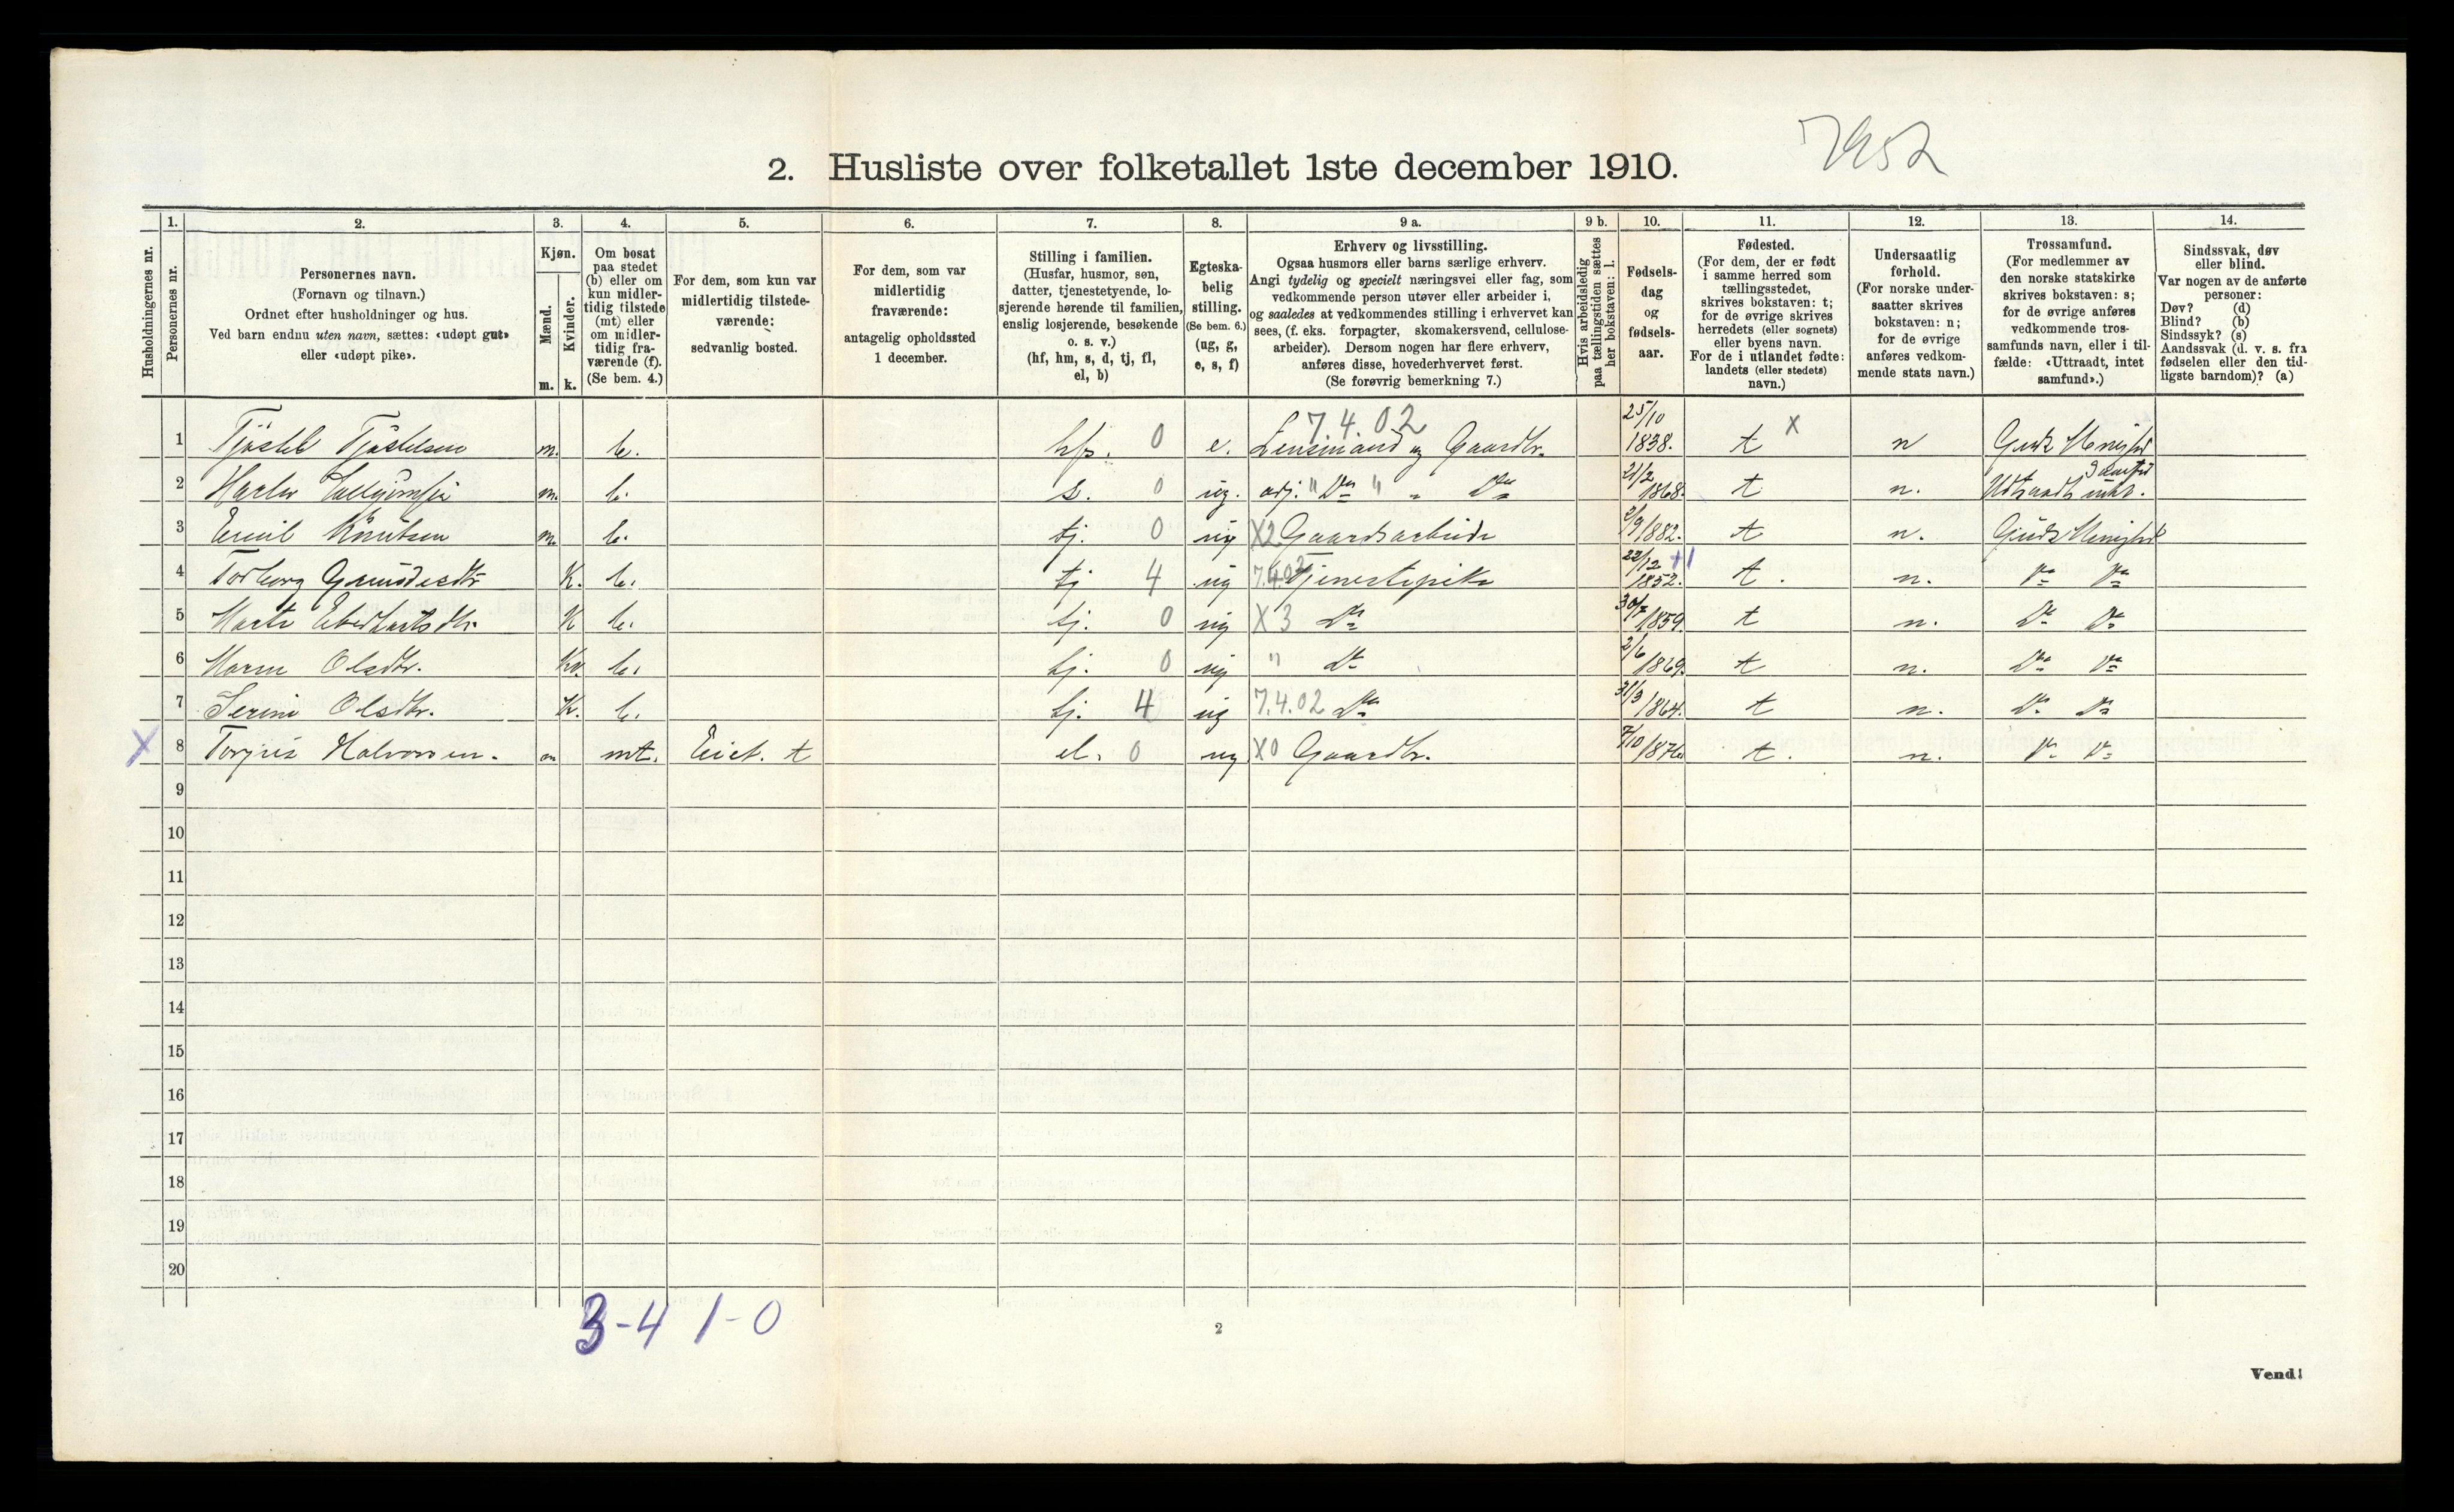 7952
2. Husliste over folketallet 1ste december 1910.
Husholdningernes nr.
1.
Personernes nr.
2.
Personernes navn.
(Fornavn og tilnavn.)
Ordnet efter husholdninger og hus.
Ved barn endnu uten navn, sættes: «udøpt gut»
eller «udøpt pike».
3.
Kjøn.
Mænd.
Kvinder.
m. k.
4.
Om bosat
paa stedet
(b) eller om
kun midler-
tidig tilstede
(mt) eller
om midler-
tidig fra-
værende (f).
(Se bem. 4.)
5.
For dem, som kun var
midlertidig tilstede-
værende:
sedvanlig bosted.
6.
For dem, som var
midlertidig
fraværende:
antagelig opholdssted
1 december.
7.
Stilling i familien.
(Husfar, husmor, søn,
datter, tjenestetyende, lo-
sjerende hørende til familien,
enslig losjerende, besøkende
o. s. v.)
(hf, hm, s, d, tj, fl,
el, b)
8.
Egteska-
belig
stilling.
(Se bem. 6.)
(ug, g,
e, s, f)
9 a.
Erhverv og livsstilling.
Ogsaa husmors eller barns særlige erhverv.
Angi tydelig og specielt næringsvei eller fag, som
vedkommende person utøver eller arbeider i,
og saaledes at vedkommendes stilling i erhvervet kan
sees, (f. eks. forpagter, skomakersvend, cellulose-
arbeider). Dersom nogen har flere erhverv,
anføres disse, hovederhvervet først.
(Se forøvrig bemerkning 7.)
9 b.
Hvis arbeidsledig
paa tællingstiden sættes
her bokstaven: l.
10.
Fødsels-
dag
og
fødsels-
aar.
11.
Fødested.
(For dem, der er født
i samme herred som
tællingsstedet,
skrives bokstaven: t;
for de øvrige skrives
herredets (eller sognets)
eller byens navn.
For de i utlandet fødte:
landets (eller stedets)
navn.)
12.
Undersaatlig
forhold.
(For norske under-
saatter skrives
bokstaven: n;
for de øvrige
anføres vedkom-
mende stats navn.)
13.
Trossamfund.
(For medlemmer av
den norske statskirke
skrives bokstaven: s;
for de øvrige anføres
vedkommende tros-
samfunds navn, eller i til-
fælde: «Uttraadt, intet
samfund».)
14.
Sindssvak, døv
eller blind.
Var nogen av de anførte
personer:
Døv? (d)
Blind? (b)
Sindssyk? (s)
Aandssvak (d. v. s. fra
fødselen eller den tid-
ligste barndom)? (a)
1 m. b. hf. 0 e. 7.4.02 Lensmand og Gaardbr. 25/10 1838. t x n
2 m. b. s. 0 ug. 21/2 1868. t n.
3 Emil Knutsen m. b. tj. 0 ug X2 Gaardsarbeide 2/9 1882. t n.
4 Torborg K. b. tj 4 ug 7.4.02 Tjenestepike 22/12 1852. +1 t. n. Do Do
5 K b. tj. 0 ug X 3 Do 30/7 1859. t n. Do Do
6 Maren Olsdtr. Kv. b. tj. 0 ug " Do 2/6 1869. t n. Do Do
7 Serine Olsdtr. K. b. tj. 4 ug 7.4.02 Do 31/3 1864. t n. Do Do
X 8 Torjus Halvorsen. m mt. t el. 0 ug X0 Gaardbr. 7/10 1876. t. n. Do Do
9
10
11
12
13
14
15
16
17
18
19
20
3-4 1-0
2
Vend!